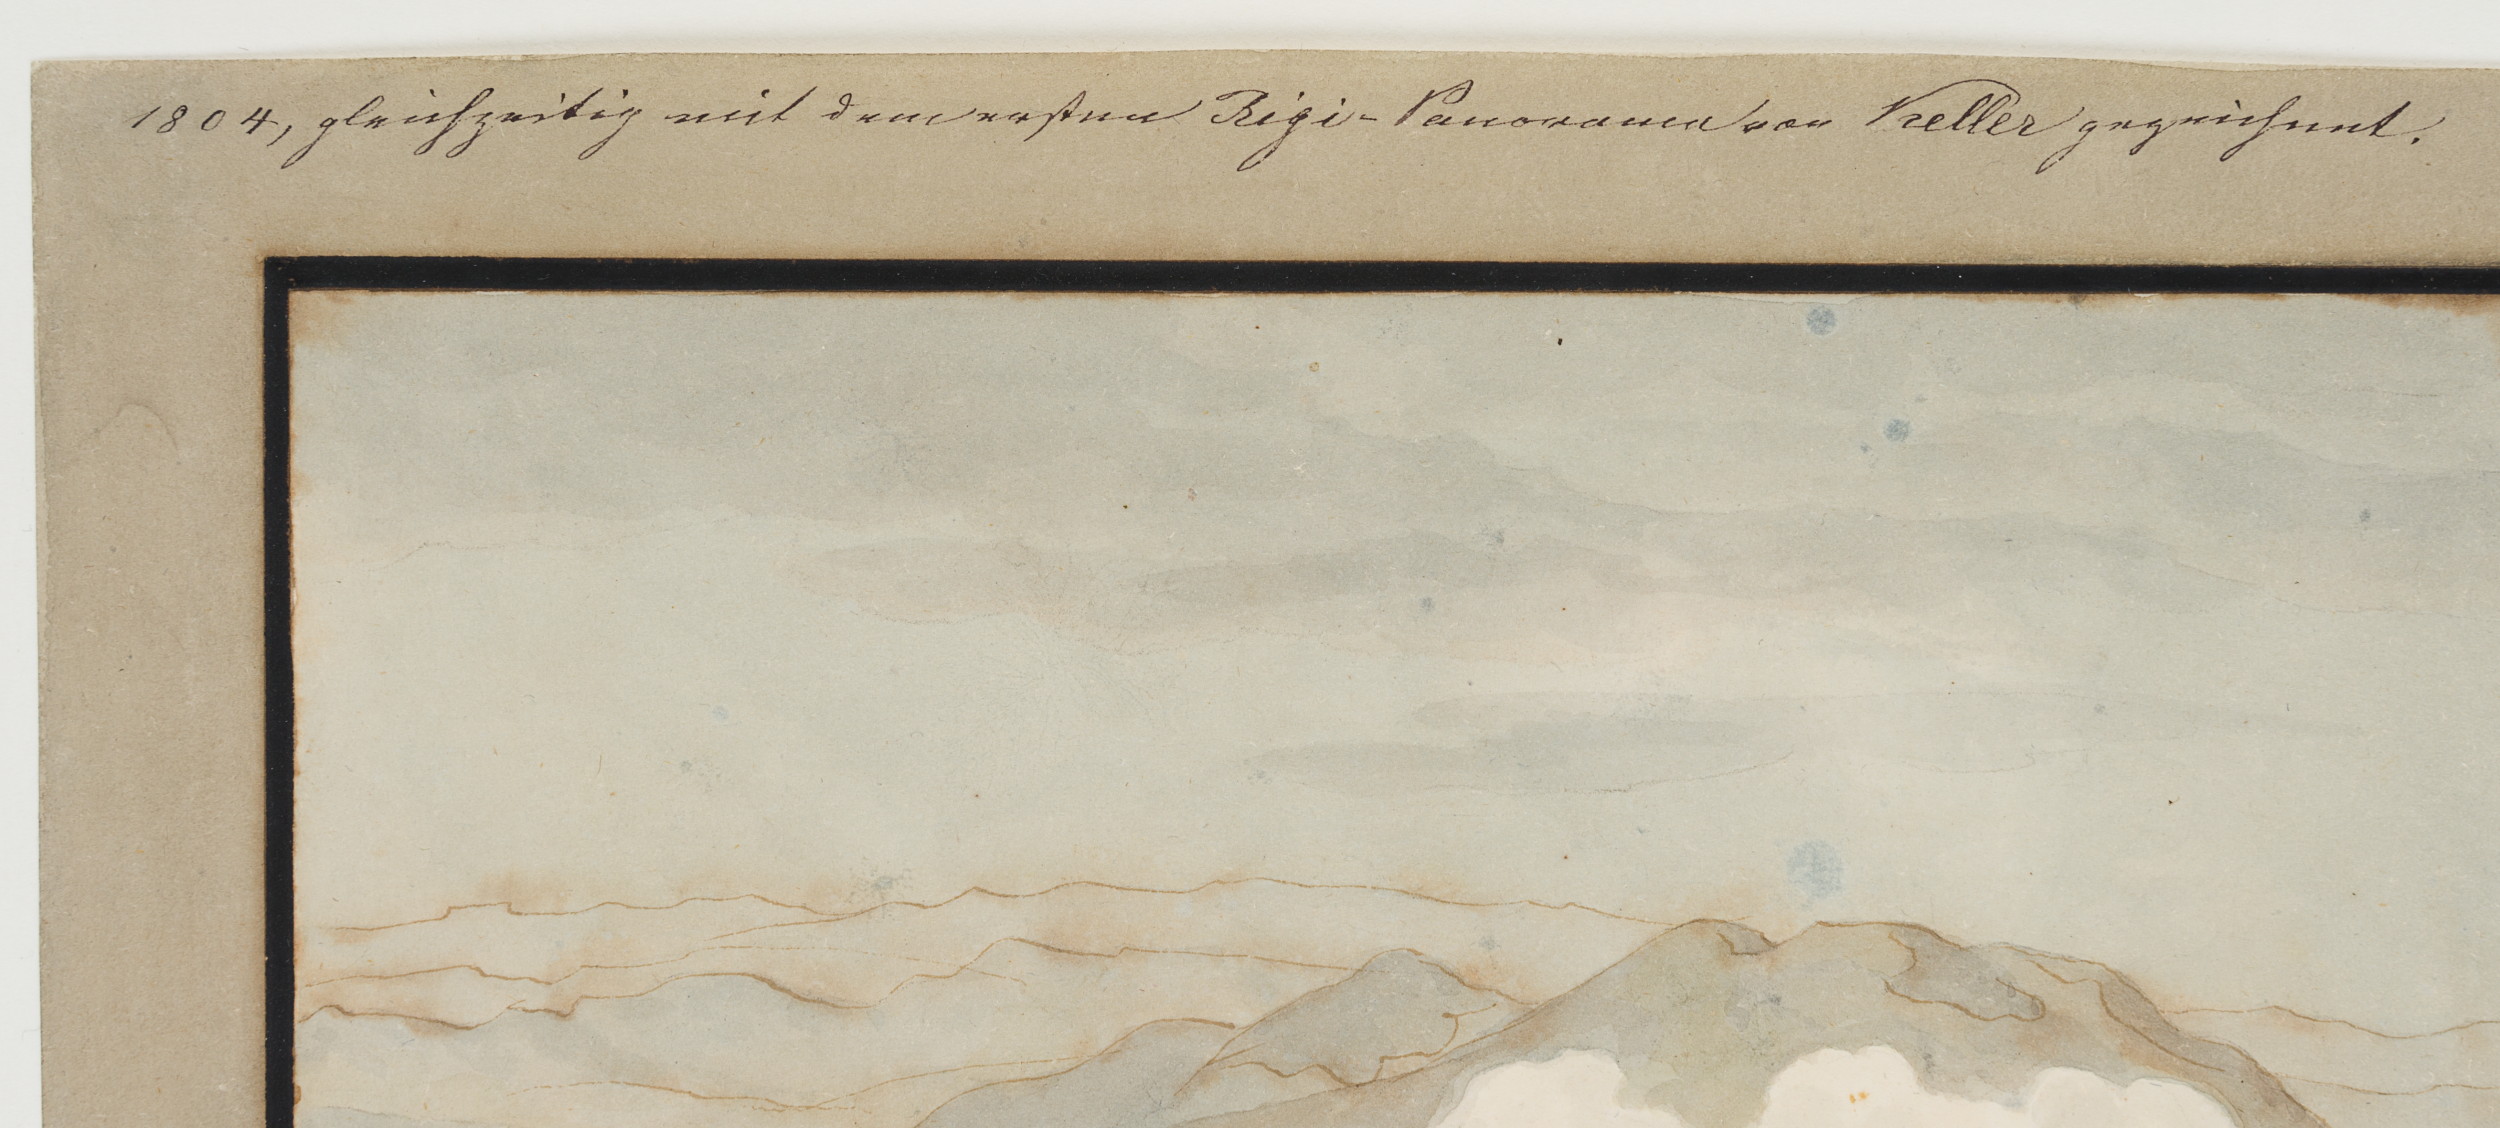 1804, gleichzeitig mit dem ersten Rigi-Panorama von Keller gezeichnet.